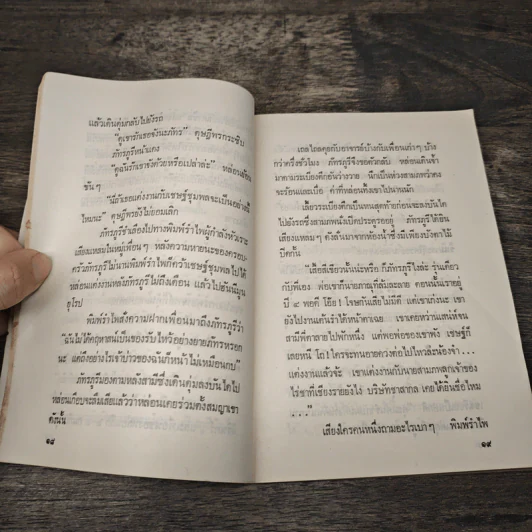 แล้วเดินคู่มากลับไปยังรถ
“ดูเขารักเธอจังนะภัทร” ดุษฎีพรกระซิบ
ภัทรภูรีหน้าแดง
“ดูฉันรักเขาจังด้วยหรือเปล่าล่ะ” หล่อนย้อน
ขัน ๆ
“นี่ถ้าเธอแต่งงานกับเชษฐ์ชุมพลจะเป็นอย่างนี้
ไหมนะ” ดุษฎีพรยังไม่ยอมเลิก
ภัทรภูรีชำเลืองไปทางพิมพ์รำไพผู้กำลังหัวเราะ
เสียงแหลมในหมู่เพื่อน ๆ หลังความหายนะของครอบ-
ครัวภัทรภูรีไม่นานพิมพ์รำไพก็คว้าเชษฐ์ชุมพลไปได้
หล่อนแต่งงานหลังภัทรภูรีไม่ถึงเดือน แล้วไปฮันนีมูน
ยุโรป
พิมพ์รำไพส่งความฝากเพื่อนมาถึงภัทรภูรีว่า
ฉันไม่ได้คฤหาสน์เป็นของรับไหว้อย่างยายภัทรหรอก
นะ แต่ถึงอย่างไรเจ้าบ่าวของฉันก็หน้าไม่เหมือนกบ”
ภัทรภูรีมองตามหลังสามีซึ่งเดินคุ่มลงบันไดไป
หล่อนเกือบจะลืมเสียแล้วว่าหล่อนเคยร่วมตั้งสมญาเขา
ดังนั้น
๑๘
เถลไถลคุยกับอาจารย์บ้างกับเพื่อนเก่าๆ บ้าง
กว่าครึ่งชั่วโมง ภัทรภูรีจึงขอตัวกลับ หล่อนเดินช้า
มาตามระเบียงตึกอันว่างวาย นึกเป็นห่วงสามีเกรงว่าคง
จะร้อนและเบื่อ ค่าที่หล่อนทิ้งเขาไปนานนัก
เลี้ยวระเบียงตึกเป็นหนสุดท้ายก่อนจะลงบันได
ไปยังรถซึ่งสามีคงนั่งเปิดประตูรออยู่ ภัทรภูรีได้ยิน
เสียงแหลมๆ ดังลั่นมาจากห้องน้ำซึ่งมีเพียงบังตาไม้
ปิดกั้น
“เสื้อสีเขียวนั่นน่ะหรือ ก็ภัทรภูรีไงล่ะ รุ่นเดียว
กับพี่เอง พ่อเขากินยาภูมิที่ล้มละลาย ตอนนั้นเรายังอยู่
ปี ๔ พอดี โอ๊ย ! โรคกินเสียไม่มีดี แต่เขาเก่งนะ เขา
ยังไปงานเต้นรำได้หน้าตาเฉย เขาเคยหว่านเสน่ห์จน
สามีพี่ตาลายไปพักหนึ่ง แต่พอพ่อของเขาพัง เชษฐ์ก็
เลยหนี โถ ! ใครจะทนอายควงต่อไปไหวล่ะน้องจ๋า...
แต่งงานแล้วจ้ะ เขาแต่งงานกับนายสามกพสกเจ้าของ
ไร่ชาที่เชียงรายยังไง บริษัทชาสากล เคยได้ยินชื่อไหม
...”
เสียงใครคนหนึ่งถามอะไรเบา ๆ พิมพ์รำไพ
๑๙